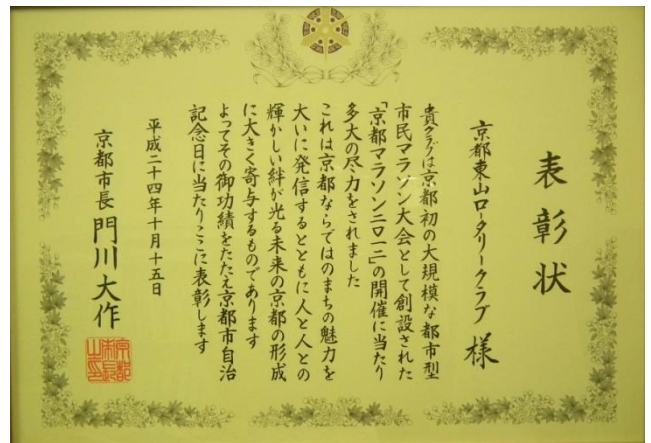 表彰状
京都東山ロータリークラブ 様
貴クラブは京都初の大規模な都市型
市民マラソン大会として創設された
「京都マラソン二〇一二」の開催に当たり
多大の尽力をされました
これは京都ならではのまちの魅力を
大いに発信するとともに人と人との
輝かしい絆が光る未来の京都の形成
に大きく寄与するものであります
よってその御功績をたたえ京都市自治
記念日に当たりここに表彰します
平成二十四年十月十五日
京都市長 門川大作